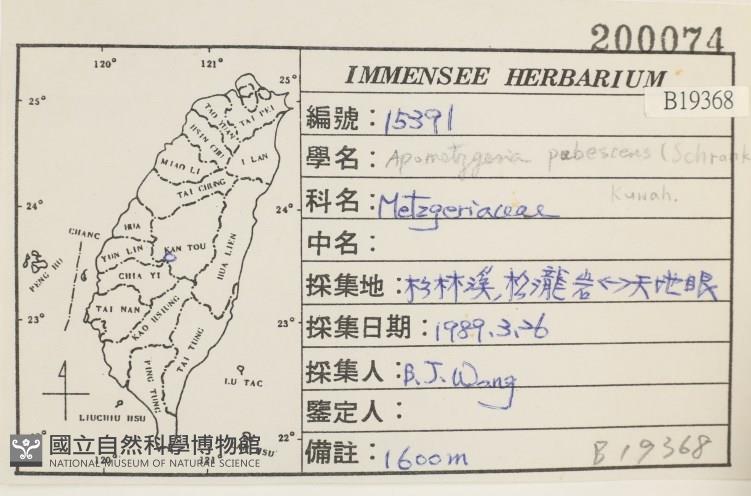 200074
IMMENSEE HERBARIUM
B19368
編號：15391
學名：Apometzgeria pubescens (Schrank
Kuwah.
科名：Metzgeriaceae
中名：
採集地：杉林溪，松瀧岩<->天地眼
採集日期：1989.3.26
採集人：B.J.Wang
鑒定人：
備註：1600m
B19368
120° 121°
25° 25°
TAO YUAN
TAI PEI
HSIN CHU
MIAO LI
I LAN
TAI CHUNG
24° 24°
HUA
CHANG
KAN TOU
HUA LIEN
YUN LIN
PENG HO
CHIA YI
TAI NAN
KAO HSIUNG
23° 23°
TAI TUNG
PING TUNG
LU TAO
LIUCHIU HSU
22° 22°
HSU
120° 121°
國立自然科學博物館
NATIONAL MUSEUM OF NATURAL SCIENCE